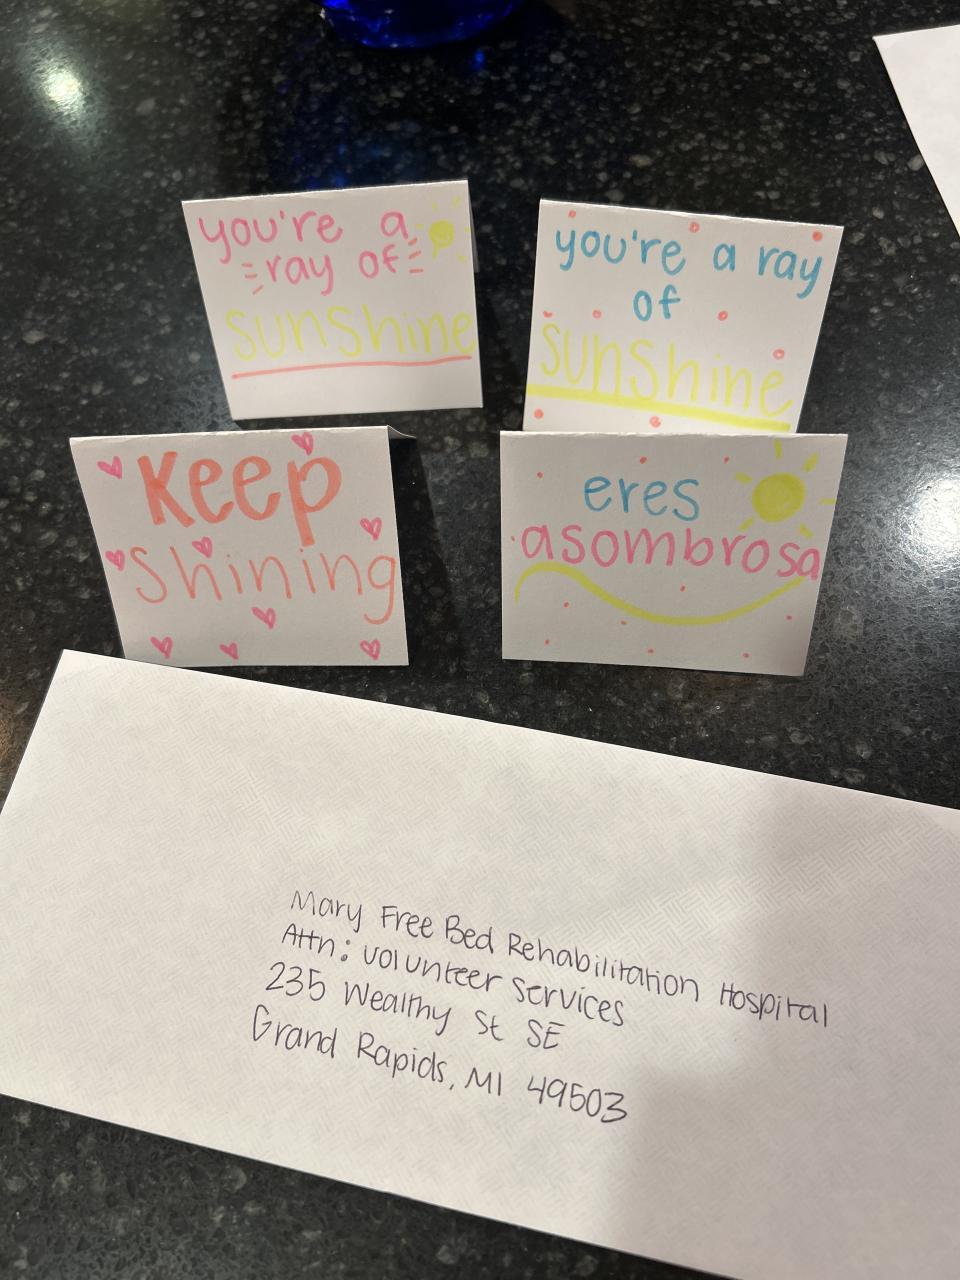 you're a
ray of
sunshine
you're a ray
of
sunshine
Keep
shining
eres
asombrosa
Mary Free Bed Rehabilitation Hospital
Attn: volunteer services
235 Wealthy St SE
Grand Rapids, MI 49503